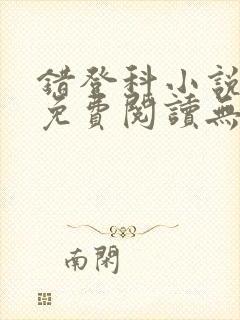 錯登科小說
免費閱讀無
南閑